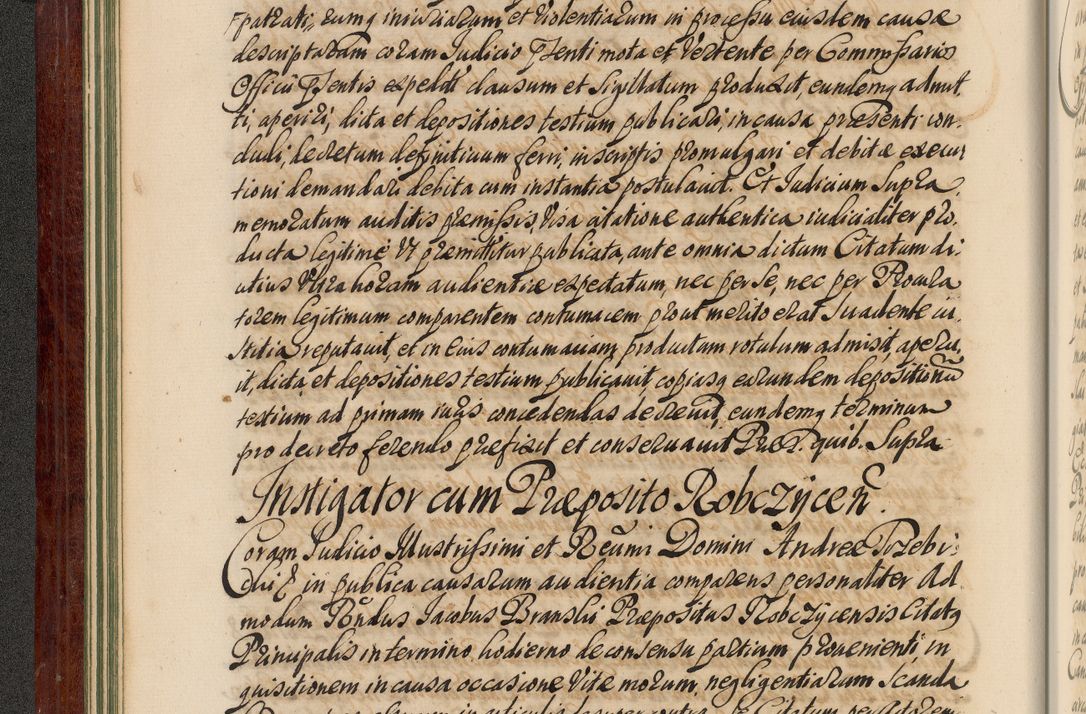 patrati, rumq iniuriarum et violentiarum in processu eiusdem causæ
descriptarum coram Judicio Psenti mota et vertente per Commissarios
Officii Psentis expeldt clausum et Sigillatum produxit, eundemq admit
ti, aperiri, dicta et depositiones testium publicari, in causa præsenti con.
cludi, decretum definitiuum ferri, in scriptis promulgari et debitæ execu
tioni demandari debita cum instantia postulauit. Et Judicium Supra
memoratum auditis præmissis, visa citatione authentica iudicialiter pro.
ducta legitime vt præmittitur publicata, ante omnia dictum Citatum di.
utius vltra horam audientiæ expectatum, nec per se, nec per Procura
torem legitimum comparentem contumacem prout merito erat suadente iu.
stitia reputauit, et in eius contumaciam productum rotulum admisit, aperu.
it, dicta et depositiones testium publicauit, copiasq earundem depositionũ
testium ad primam iuris concedendas decreuit, eundemq terminum
pro decreto ferendo præfixit et conseruauit Præs. quib. Supra
Instigator cum Præposito Robczycen̄.
Coram Judicio Illustrissimi et Rẽuni Domini Andreæ Trzebi:
cki ꝛ in publica causarum audientia comparens personaliter Ad
modum Rñdus Jacobus Branski Præpositus Robczycensis Citatq
Principalis in termino hodierno de consensu partium prouenienti, in
quisitionem in causa occasione vitæ morum, negligentiarum Scanda